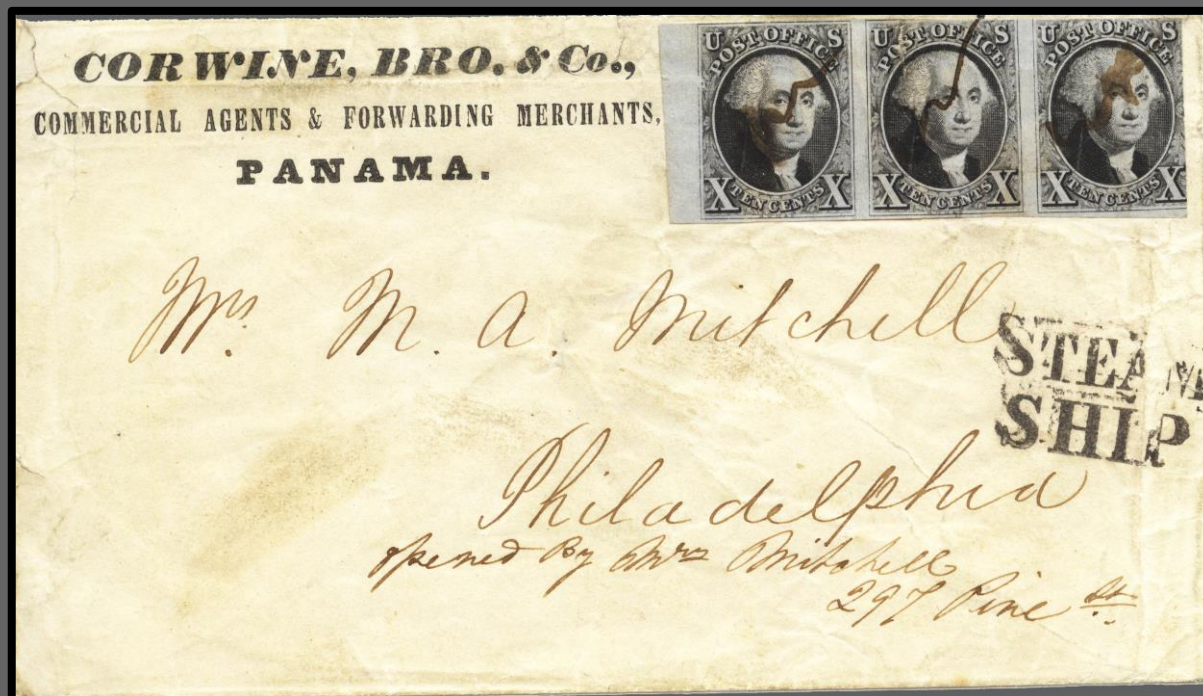 CORWINE, BRO. & Co.,
COMMERCIAL AGENTS & FORWARDING MERCHANTS,
PANAMA.
U S U S U S
POST OFFICE POST OFFICE POST OFFICE
X TEN CENTS X X TEN CENTS X X TEN CENTS X
Mrs. M. A. Mitchell
STEAM
SHIP
Philadelphia
opened By Mrs Mitchell
297 Pine St.